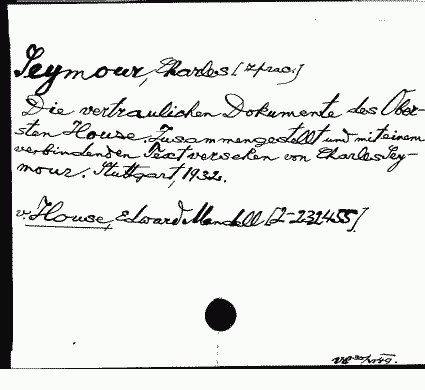 Seymour, Charles [oprac.]
Die vertraulichen Dokumente des Ober-
sten House. Zusammengestellt und mit einem
verbindenden Text versehen von Charles Sey-
mour. Stuttgart, 1932.
v. House, Edward Mandell [2-232455]